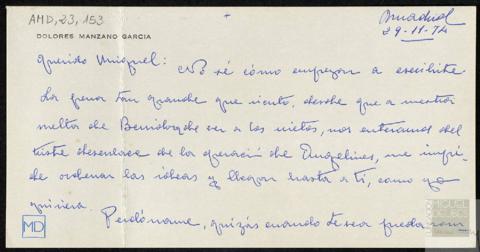 AMD, 23, 153
Madrid
29-11-74
DOLORES MANZANO GARCIA
Querido Miguel: No sé cómo empezar a escribirte
La pena tan grande que siento, desde que a nuestra
vuelta de de ver a los nietos, nos enteramos del
triste desenlace de la operación de Angelines, me impi-
de ordenar las ideas y llegar hasta a ti, como yo
quisiera. Perdóname, quizás cuando te vea pueda
MD
MIGUEL
DELIBES